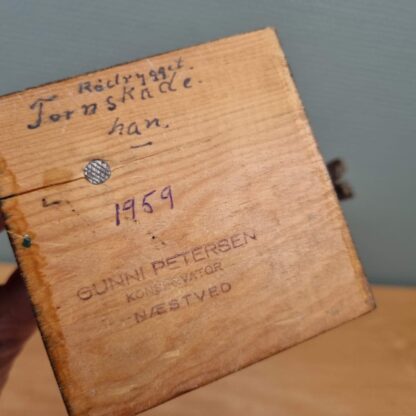 Rødrygget.
Tornskade.
han.
1959
GUNNI PETERSEN
KONSERVATOR
NÆSTVED